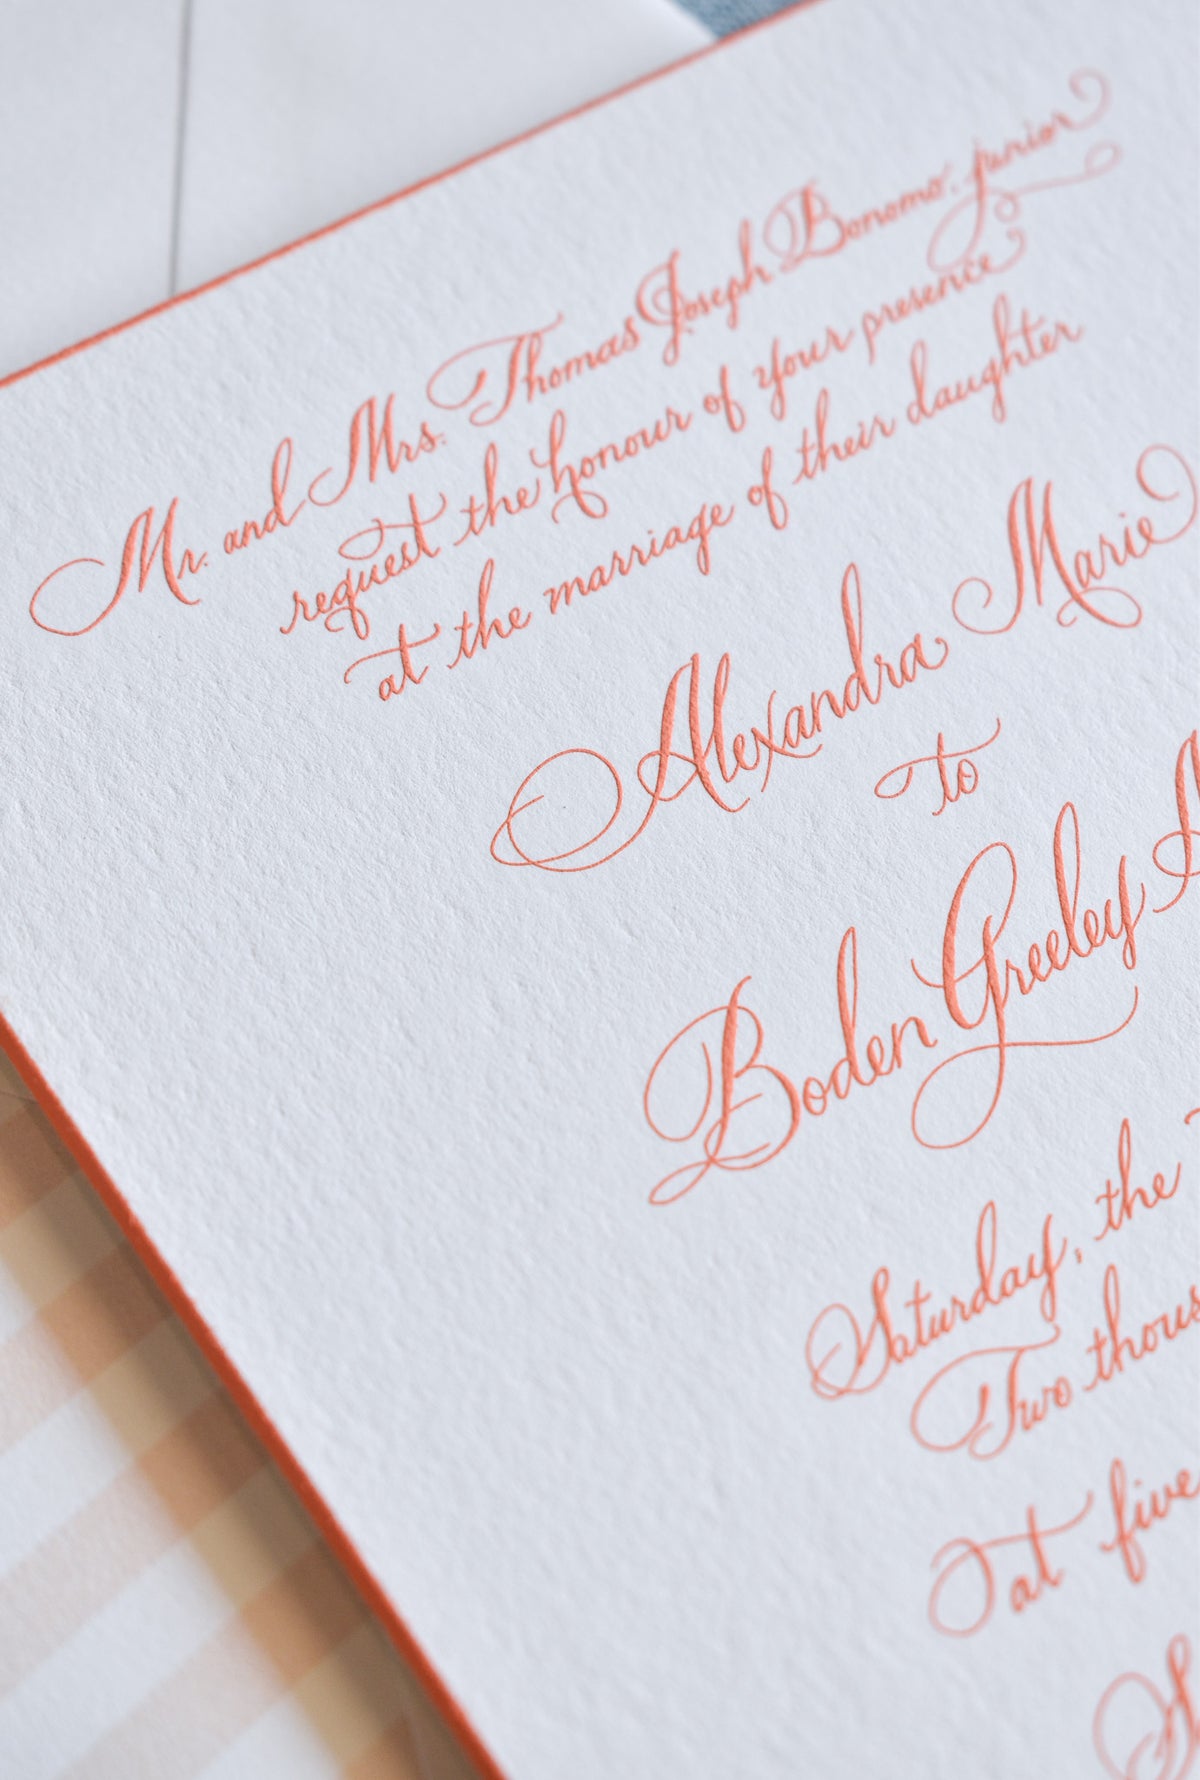 Mr. and Mrs. Thomas Joseph Bonomo, junior
request the honour of your presence
at the marriage of their daughter
Alexandra Marie
to
Boden Greeley
Saturday, the
Two thous
at five